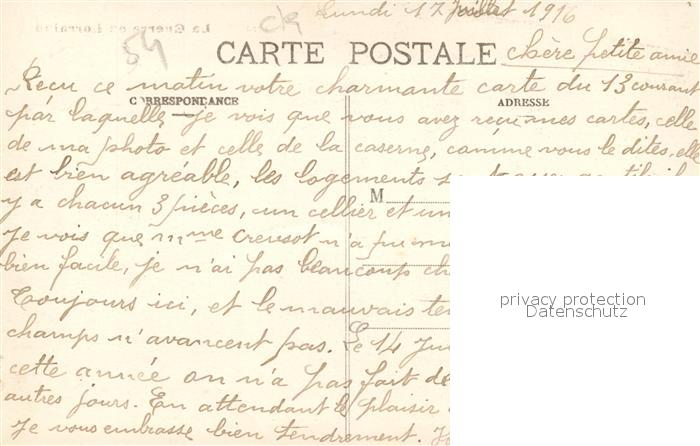 Lundi 17 Juillet 1916
54
CARTE POSTALE
chère petite amie
Recu ce matin votre charmante carte du 13 courant
CORRESPONDANCE
ADRESSE
par laquelle je vois que vous avez reçu mes cartes, celle
de ma photo et celle de la caserne, comme vous le dites, elle
est bien agréable, les logements
M
y a chacun 3 pièces, un cellier et un
Je vois que Mme Creusot n'a pu
bien facile, je n'ai pas beaucoup
Toujours ici, et le mauvais
champs n'avancent pas. Le 14
cette année on n'a pas fait de
autres jours. En attendant le plaisir
Je vous embrasse bien tendrement.
privacy protection
Datenschutz